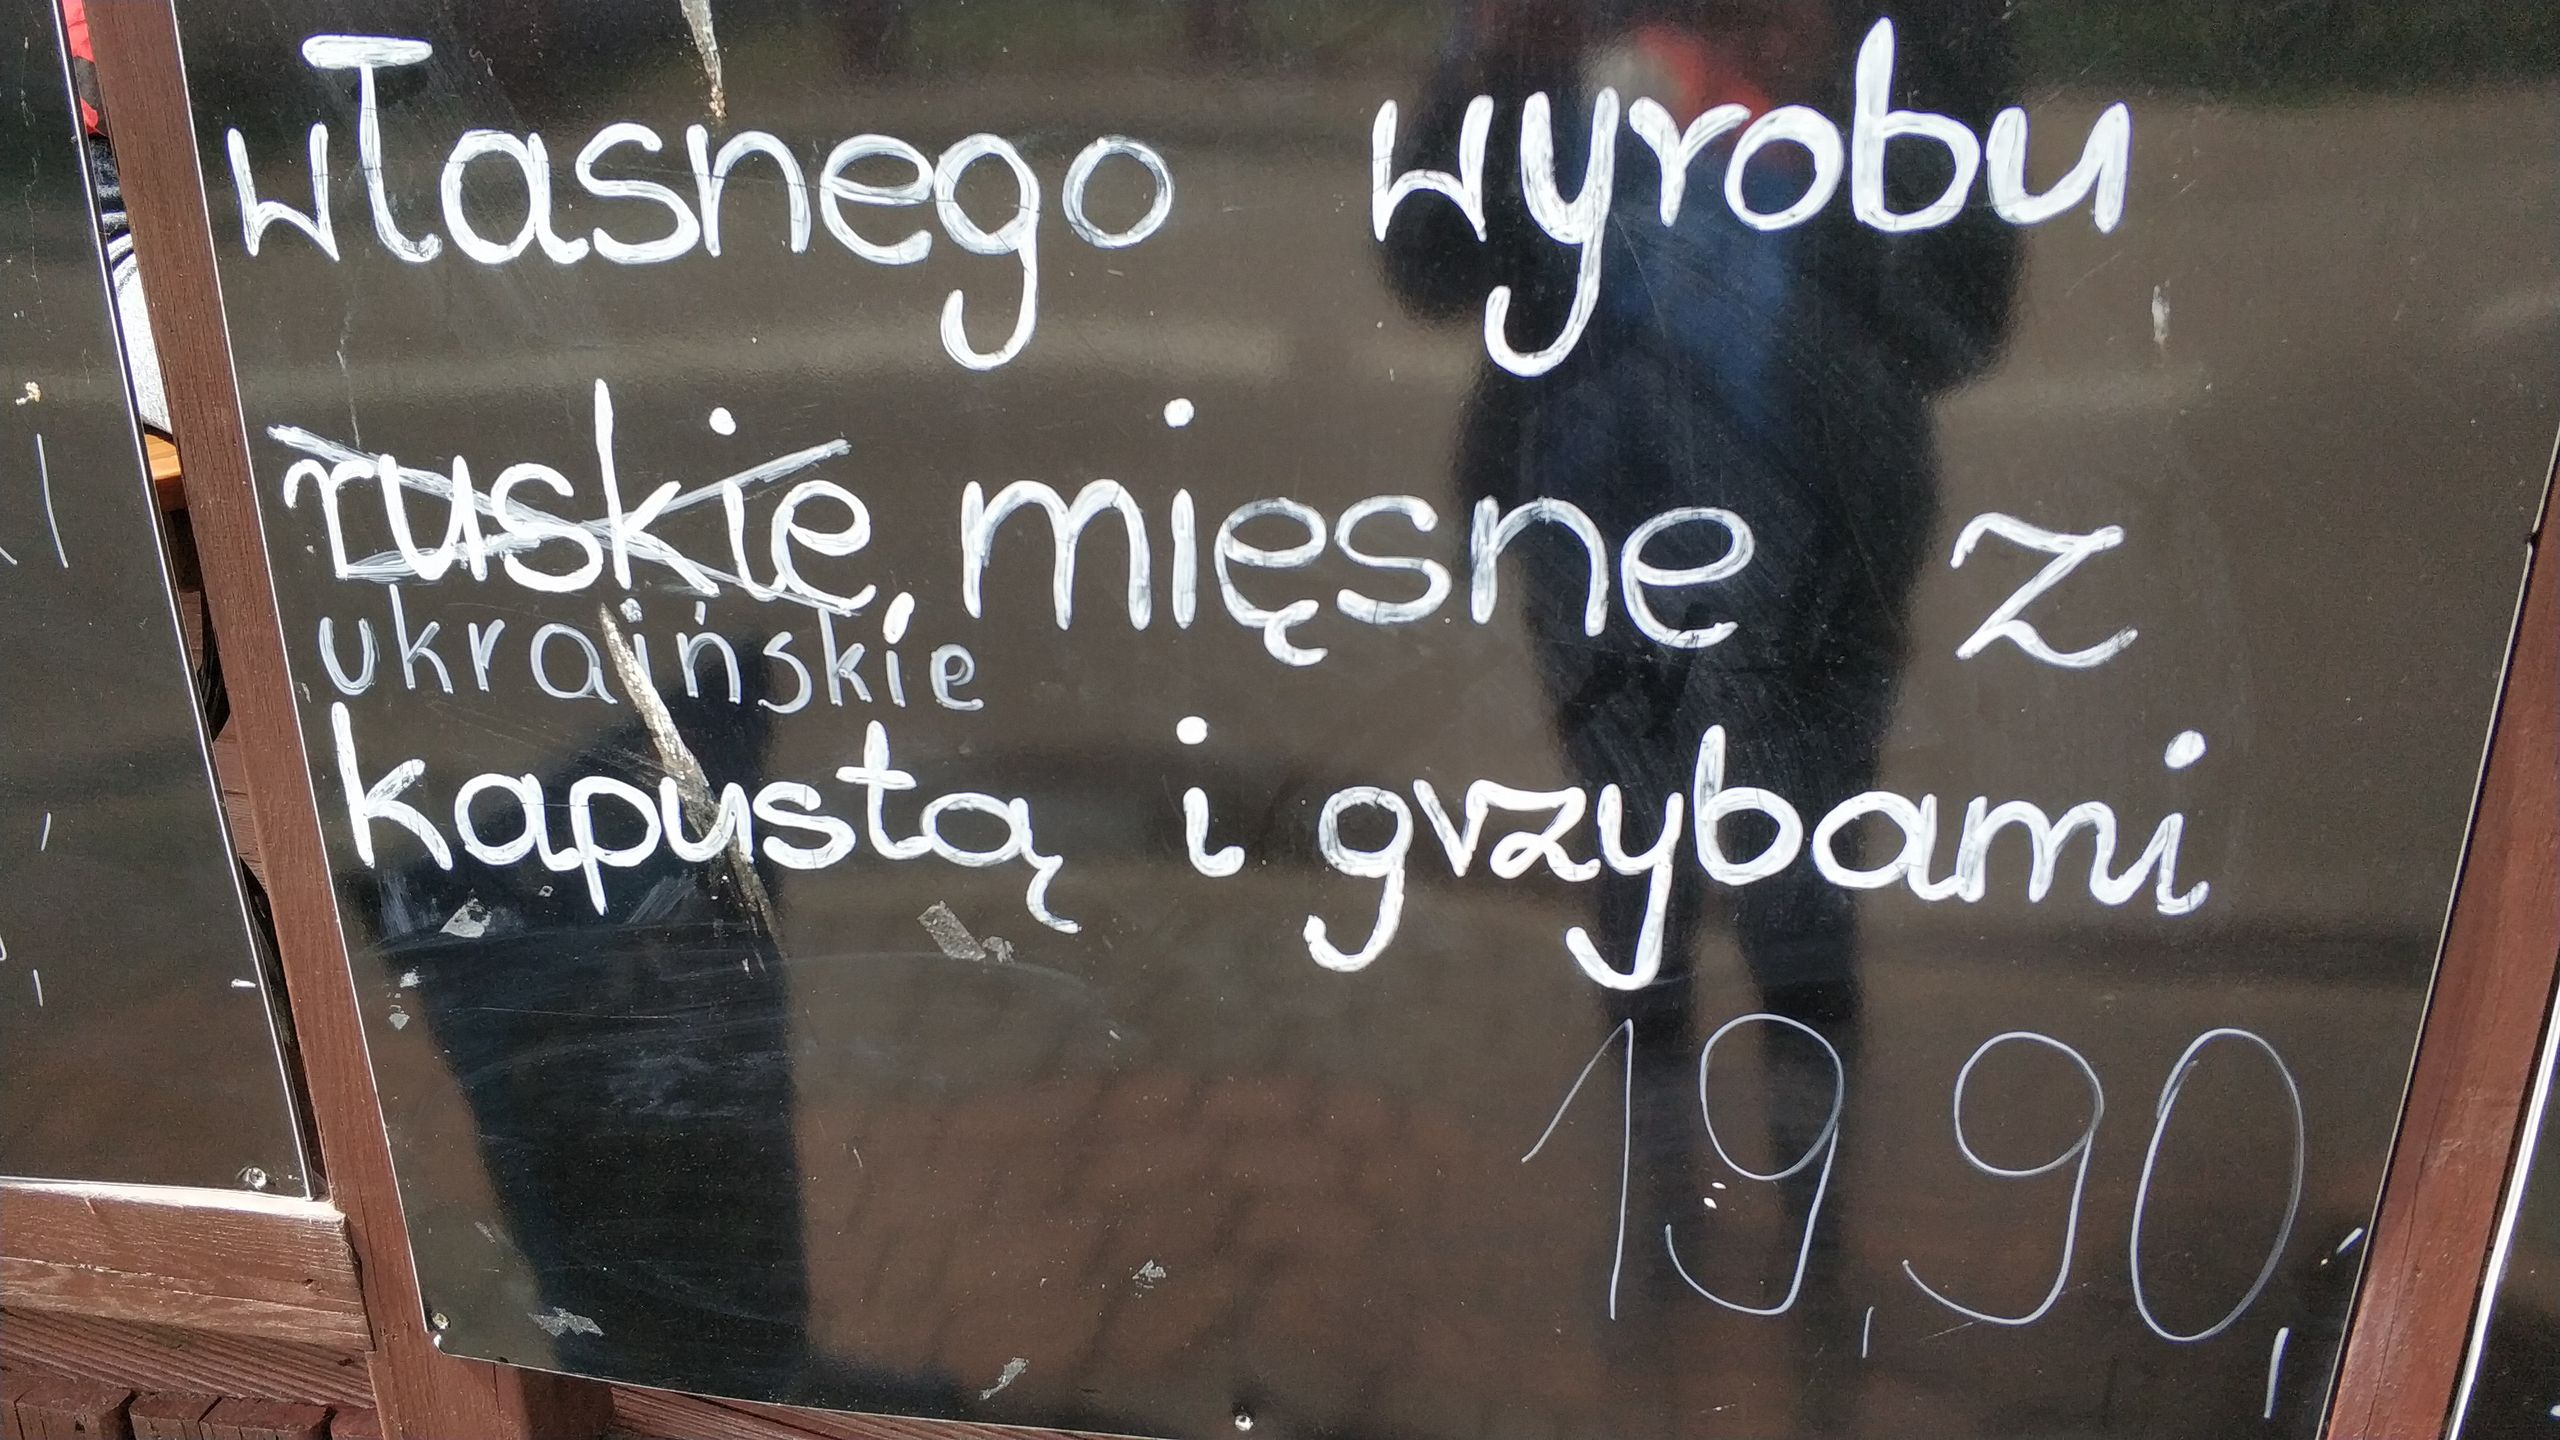 własnego wyrobu
ruskie, mięsne z
ukraińskie
kapustą i grzybami
19,90,